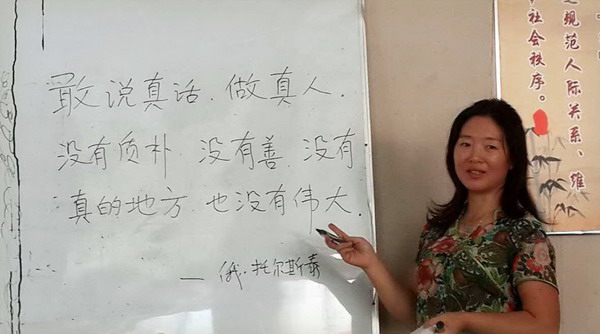 敢说真话.做真人.
没有质朴.没有善.没有
真的地方.也没有伟大.
— 俄·托尔斯泰
规范人际关系、维
社会秩序。